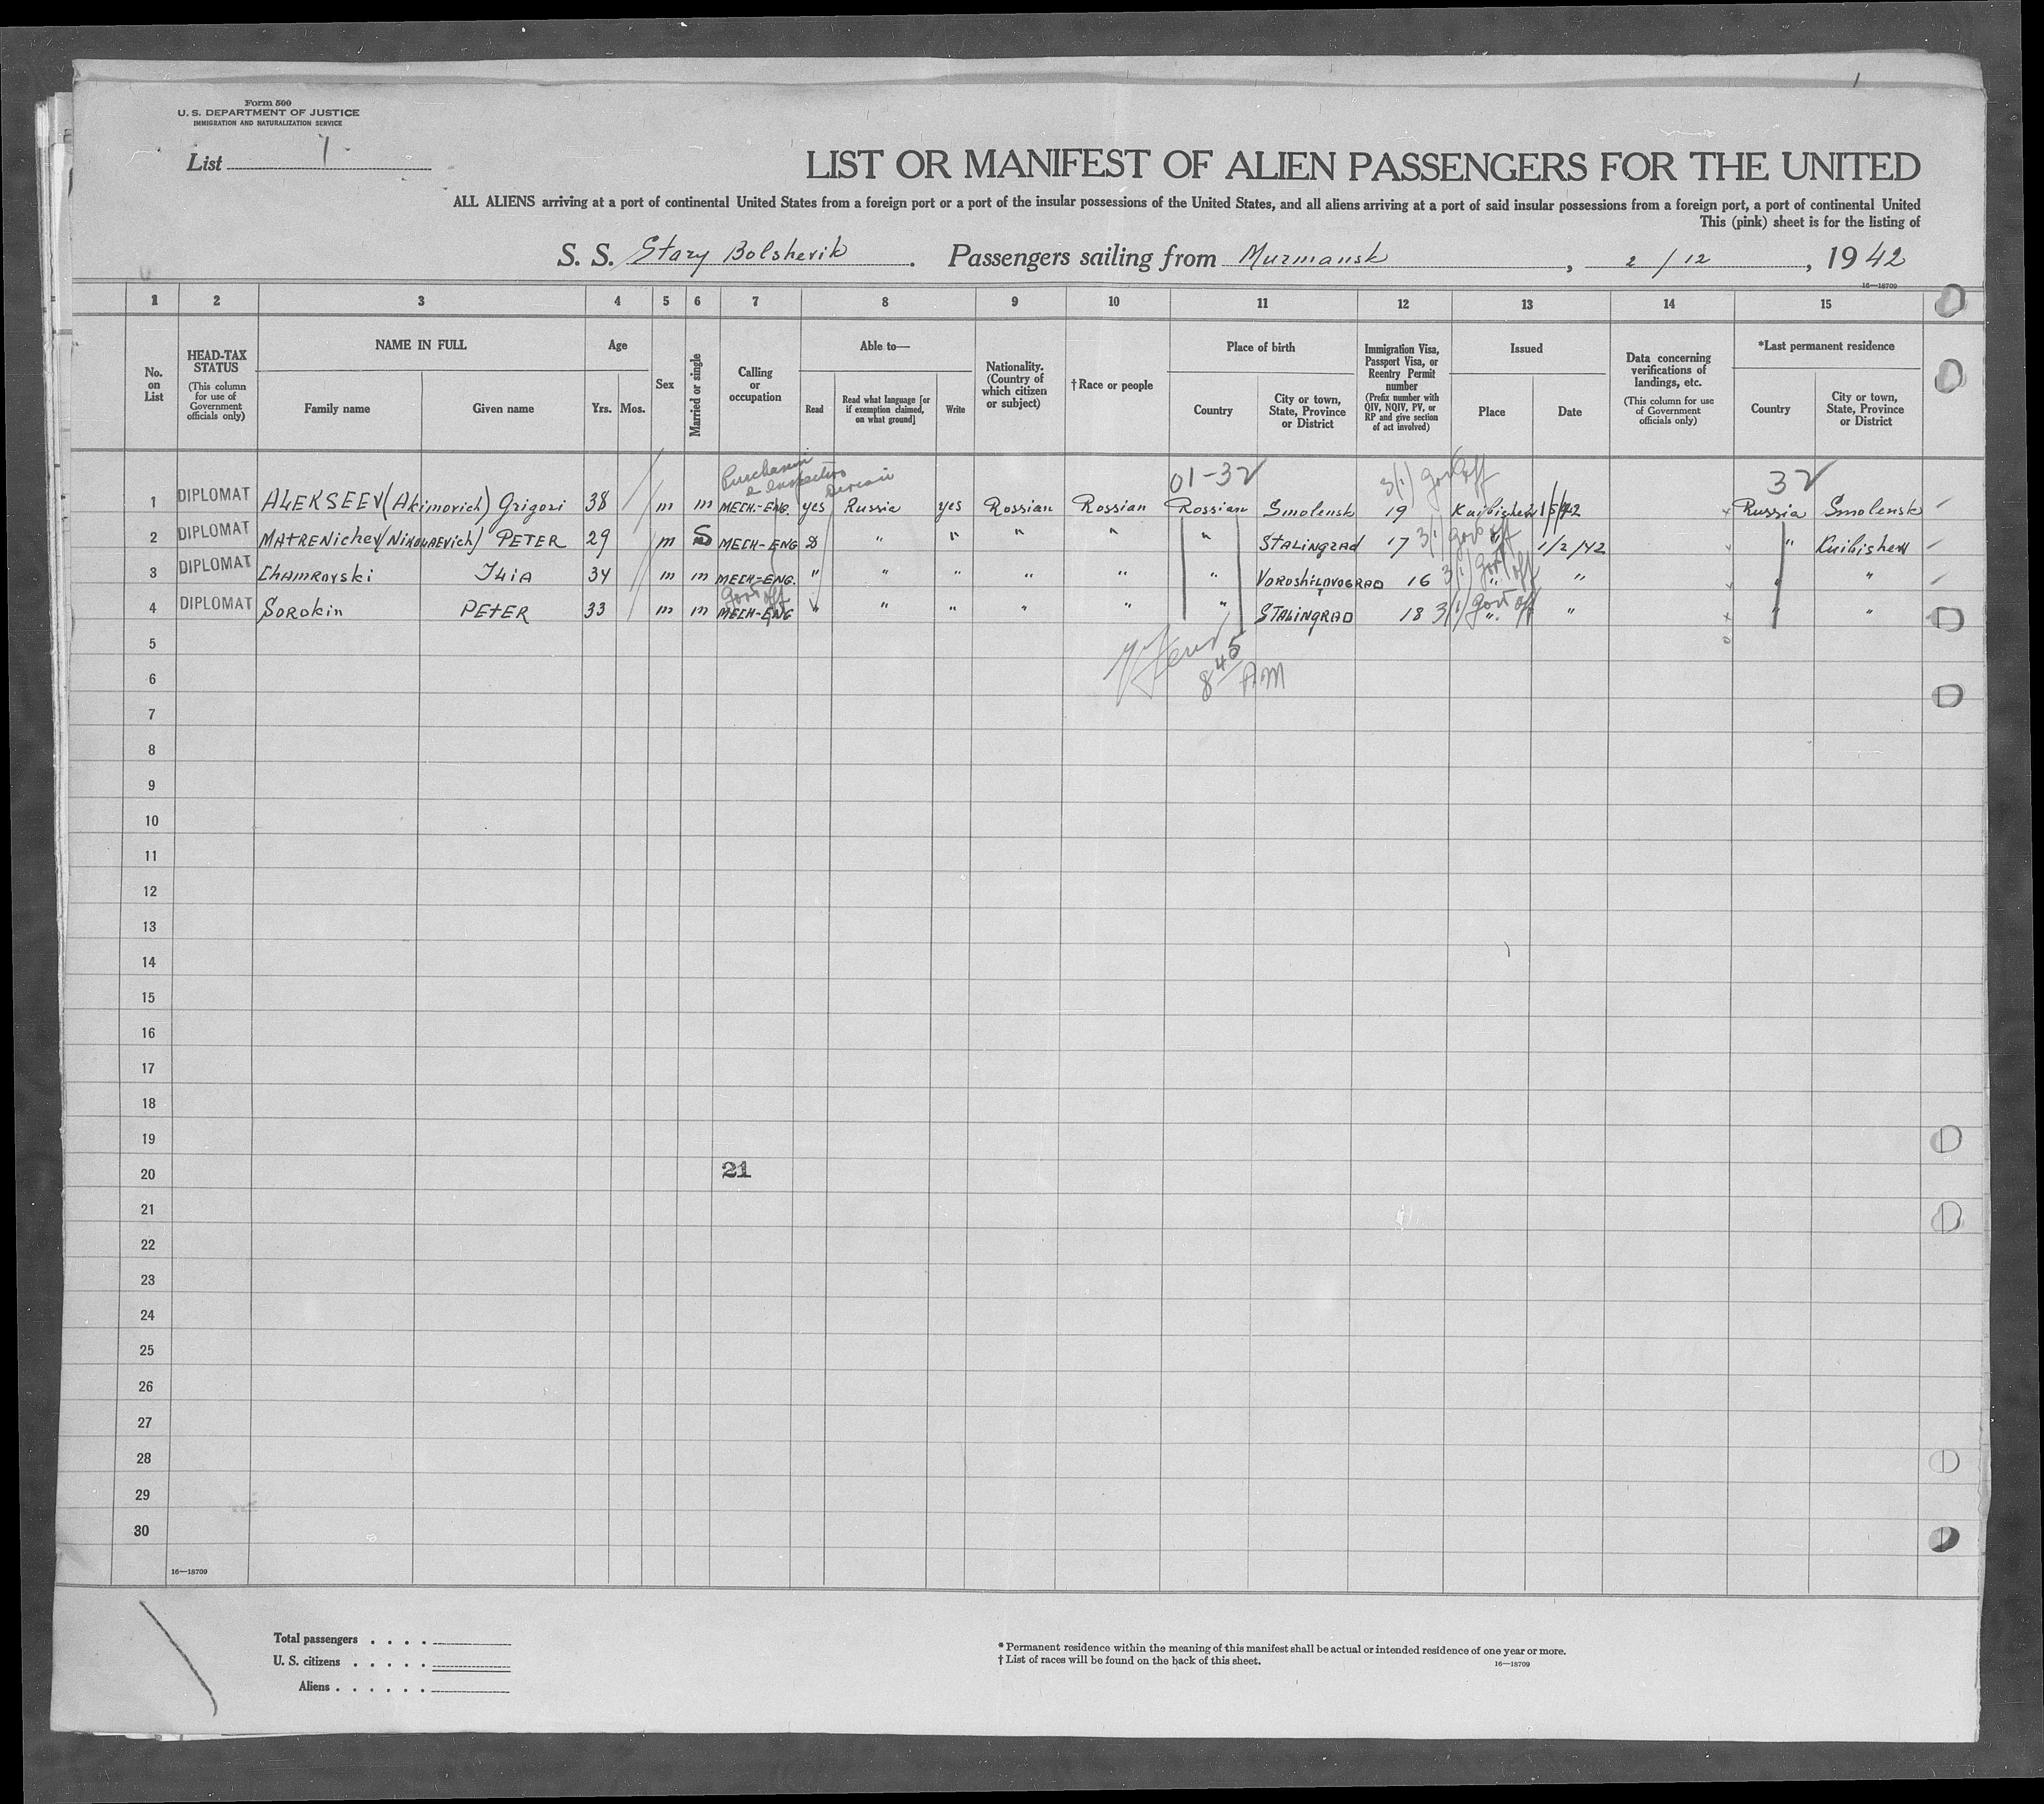 1
Form 500
U. S. DEPARTMENT OF JUSTICE
IMMIGRATION AND NATURALIZATION SERVICE
List 1
LIST OR MANIFEST OF ALIEN PASSENGERS FOR THE UNITED
ALL ALIENS arriving at a port of continental United States from a foreign port or a port of the insular possessions of the United States, and all aliens arriving at a port of said insular possessions from a foreign port, a port of continental United
This (pink) sheet is for the listing of
S. S. Stary Bolshevik . Passengers sailing from Murmansk , 2 / 12 , 1942
16—18709
1 2 3 4 5 6 7 8 9 10 11 12 13 14 15
No. on List
HEAD-TAX STATUS (This column for use of Government officials only)
NAME IN FULL
Family name Given name
Age
Yrs. Mos.
Sex
Married or single
Calling or occupation
Able to—
Read
Read what language [or if exemption claimed, on what ground]
Write
Nationality. (Country of which citizen or subject)
†Race or people
Place of birth
Country
City or town, State, Province or District
Immigration Visa, Passport Visa, or Reentry Permit number (Prefix number with QIV, NQIV, PV, or RP and give section of act involved)
Issued
Place Date
Data concerning verifications of landings, etc. (This column for use of Government officials only)
*Last permanent residence
Country
City or town, State, Province or District
01-32 3/1) Gov off 32
1 DIPLOMAT ALEKSEEV (Akimovich) Grigori 38 m m MECH.-ENG. yes Russia yes Rossian Rossian Rossian Smolensk 19 Kuibishew 1/5/42 Russia Smolensk
2 DIPLOMAT MATRENichev (NIKOLAEVich) PETER 29 m S MECH-ENG " " " " " STALINGRAD 17 3/1) Gov off " 1/2/42 " Kuibishew
3 DIPLOMAT ChAMROVSki ILIA 34 m m MECH-ENG. " " " " " " VOROShILOVOGRAD 16 3/1) Gov off " " " "
Govt off
4 DIPLOMAT Sorokin PETER 33 m m MECH-ENG " " " " " " STALINGRAD 18 3/1) Govt off " " " "
5
8 45 AM
6
7
8
9
10
11
12
13
14
15
16
17
18
19
20 21
21
22
23
24
25
26
27
28
29
30
16—18709
Total passengers . . . .
U. S. citizens . . . . .
Aliens . . . . . .
* Permanent residence within the meaning of this manifest shall be actual or intended residence of one year or more.
† List of races will be found on the back of this sheet.
16—18709